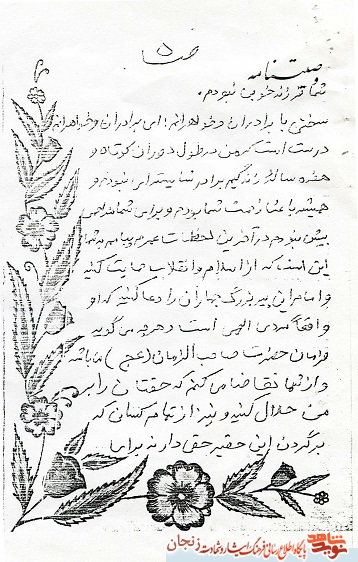 ص ۵
وصیتنامه
شما فرزند خوبی نبودم.
سخنی با برادران و خواهرانم: ای برادران و خواهرانم
درست است که من در طول دوران کوتاه و
هفده ساله زندگیم برادر شایسته‌ای نبودم و
همیشه باعث زحمت شما بودم و برای شما قدمی
پیش نبودم در آخرین لحظات عمرم پیامم به شما
این است که از اسلام و انقلاب حمایت کنید
و امام این پیر بزرگ جماران را دعا کنید که او
واقعاً مردی الهی است و هر چه می گوید
فرمان حضرت صاحب الزمان (عج) می باشد
و از شما تقاضا می کنم که حقتان را بر
من حلال کنید و نیز از تمام کسانی که
بر گردن این حقیر حق دارند برای
نوید شاهد
پایگاه اطلاع رسانی فرهنگ ایثار و شهادت زنجان